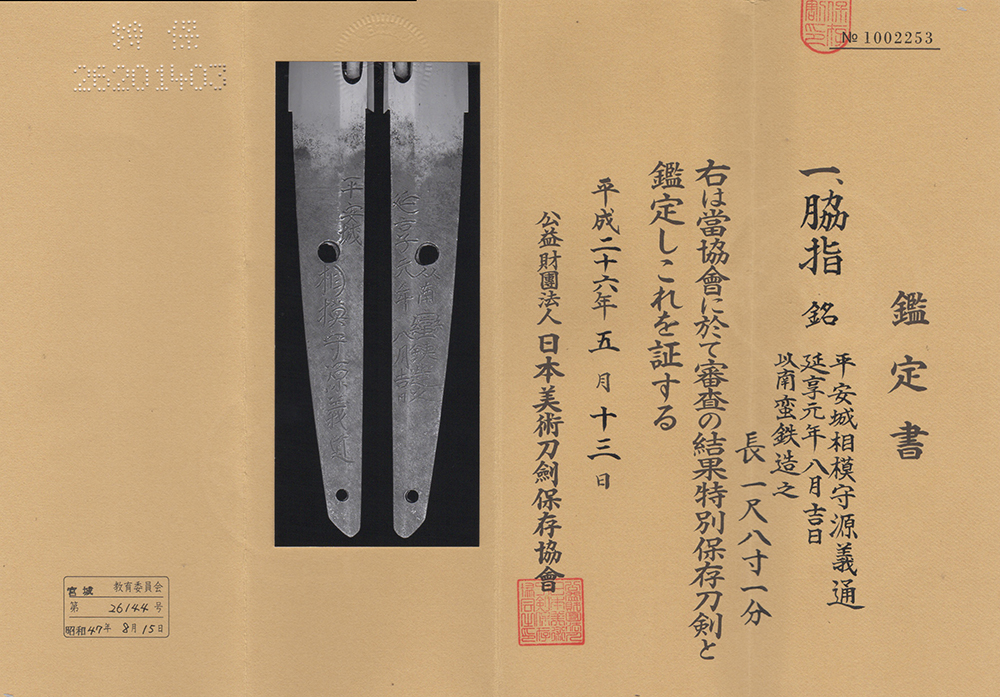 № 1002253
鑑定書
一、脇指 銘 平安城相模守源義通
延享元年八月吉日
以南蛮鉄造之
長一尺八寸一分
右は當協會に於て審査の結果特別保存刀剣と
鑑定しこれを証する
平成二十六年五月十三日
公益財團法人日本美術刀劍保存協會
平安城相模守源義通
延享元年八月吉
以南蛮鉄
26201403
宮城 教育委員会
第 26144 号
昭和47年 8月15日